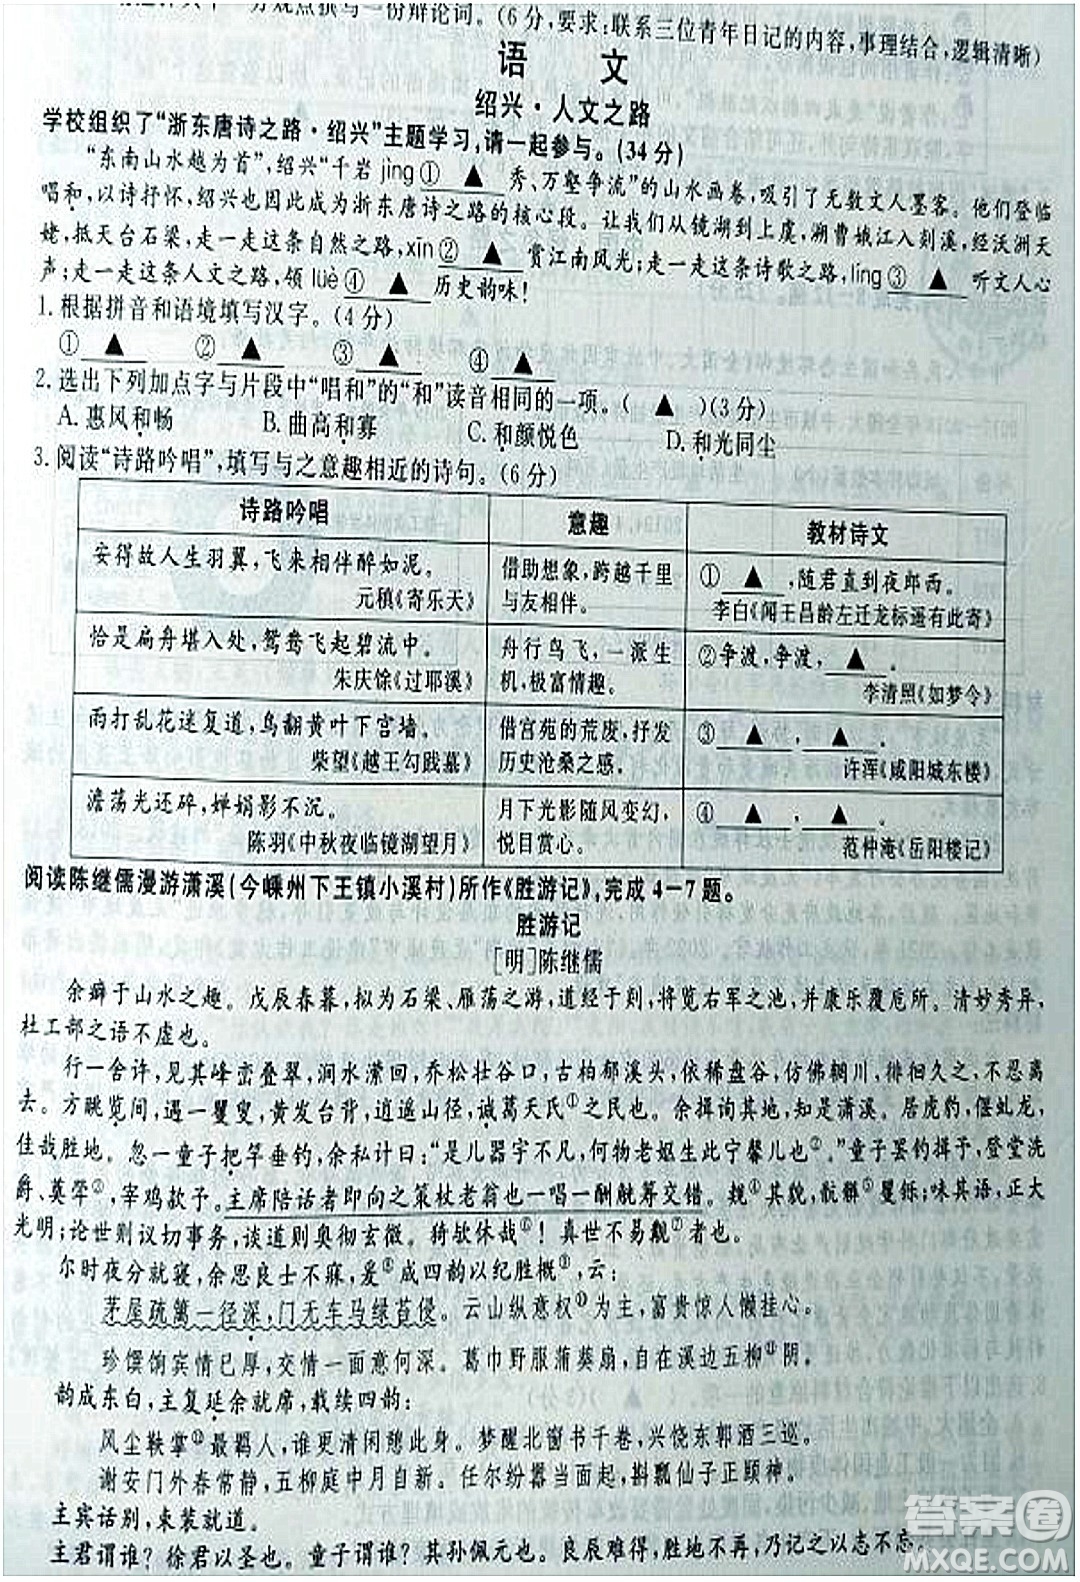 分观点撰写一份辩论词。(6分,要求:联系三位青年日记的内容,事理结合,逻辑清晰)
语 文
绍兴·人文之路
学校组织了“浙东唐诗之路·绍兴”主题学习,请一起参与。(34分)
“东南山水越为首”,绍兴“千岩 jìng ① ▲ 秀、万壑争流”的山水画卷,吸引了无数文人墨客。他们登临
唱和,以诗抒怀,绍兴也因此成为浙东唐诗之路的核心段。让我们从镜湖到上虞,溯曹娥江入剡溪,经沃洲天
姥,抵天台石梁,走一走这条自然之路,xīn ② ▲ 赏江南风光;走一走这条诗歌之路,líng ③ ▲ 听文人心
声;走一走这条人文之路,领 lüè ④ ▲ 历史韵味!
1. 根据拼音和语境填写汉字。(4分)
① ▲ ② ▲ ③ ▲ ④ ▲
2. 选出下列加点字与片段中“唱和”的“和”读音相同的一项。( ▲ )(3分)
A. 惠风和畅 B. 曲高和寡 C. 和颜悦色 D. 和光同尘
3. 阅读“诗路吟唱”,填写与之意趣相近的诗句。(6分)
诗路吟唱 意趣 教材诗文
安得故人生羽翼,飞来相伴醉如泥。
元稹《寄乐天》
借助想象,跨越千里
与友相伴。
① ▲ ,随君直到夜郎西。
李白《闻王昌龄左迁龙标遥有此寄》
恰是扁舟堪入处,鸳鸯飞起碧流中。
朱庆馀《过耶溪》
舟行鸟飞,一派生
机,极富情趣。
②争渡,争渡, ▲ 。
李清照《如梦令》
雨打乱花迷复道,鸟翻黄叶下宫墙。
柴望《越王勾践墓》
借宫苑的荒废,抒发
历史沧桑之感。
③ ▲ , ▲ 。
许浑《咸阳城东楼》
澹荡光还碎,婵娟影不沉。
陈羽《中秋夜临镜湖望月》
月下光影随风变幻,
悦目赏心。
④ ▲ , ▲ 。
范仲淹《岳阳楼记》
阅读陈继儒漫游潇溪(今嵊州下王镇小溪村)所作《胜游记》,完成4—7题。
胜游记
[明]陈继儒
余癖于山水之趣。戊辰春暮,拟为石梁、雁荡之游,道经于剡,将览右军之池,并康乐覆卮所。清妙秀异,
杜工部之语不虚也。
行一舍许,见其峰峦叠翠,涧水潆回,乔松壮谷口,古柏郁溪头,依稀盘谷,仿佛辋川,徘徊久之,不忍离
去。方眺览间,遇一矍叟,黄发台背,逍遥山径,诚葛天氏①之民也。余揖询其地,知是潇溪。居虎豹,偃虬龙,
佳哉胜地。忽一童子把竿垂钓,余私计曰:“是儿器宇不凡,何物老妪生此宁馨儿也②。”童子罢钓揖予,登堂洗
爵、莫斝③,宰鸡款子。主席陪话者即向之策杖老翁也一唱一酬觥筹交错。觌④其貌,骯髒⑤矍铄;味其语,正大
光明;论世则议切事务,谈道则奥彻玄微。猗欤休哉⑥!真世不易觏⑦者也。
尔时夜分就寝,余思良士不寐,爰⑧成四韵以纪胜概⑨,云:
茅屋疏篱一径深,门无车马绿苔侵。云山纵意权⑩为主,富贵惊人懒挂心。
珍馔饷宾情已厚,交情一面意何深。葛巾野服蒲葵扇,自在溪边五柳⑪阴。
韵成东白,主复延余就席,载续四韵:
风尘鞅掌⑫最羁人,谁似清闲养性真。梦醒北窗书千卷,兴饶东郭酒三巡。
谢安门外春常静,五柳庭中月自新。任尔纷嚣如面起,斟瓢仙子正颐神。
主宾话别,束装就道。
主君谓谁?徐君以圣也。童子谓谁?其孙佩元也。良辰难得,胜地不再,乃记之以志不忘。
答案圈
MXQE.COM